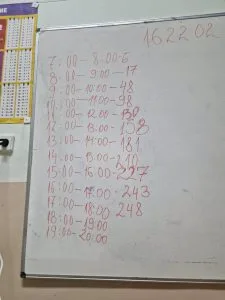 162202
7:00-8:00-6
8:00-9:00-17
9:00-10:00-48
10:00-11:00-98
11:00-12:00-130
12:00-13:00-153
13:00-14:00-181
14:00-15:00-210
15:00-16:00-227
16:00-17:00-243
17:00-18:00-248
18:00-19:00
19:00-20:00